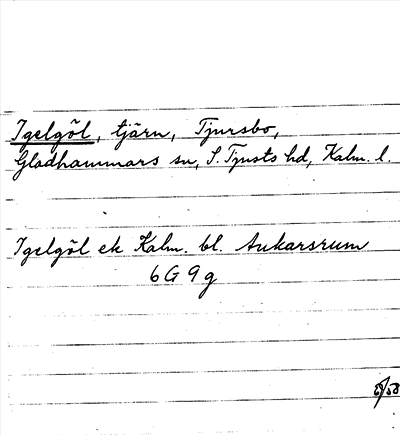 Igelgöl, tjärn, Tjursbo,
Gladhammars sn, S. Tjusts hd, Kalm. l.
Igelgöl ek Kalm. bl. Ankarsrum
6G 9g